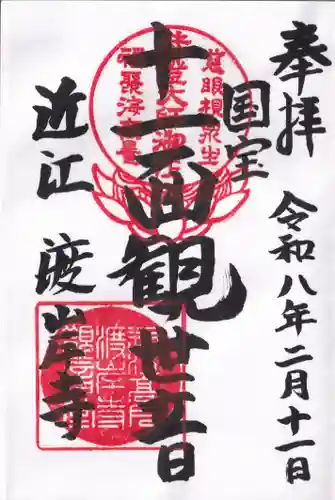 奉拝
令和八年二月十一日
国宝
慈眼視衆生
福聚海無量
十一面観世音
近江 渡岸寺
渡岸寺